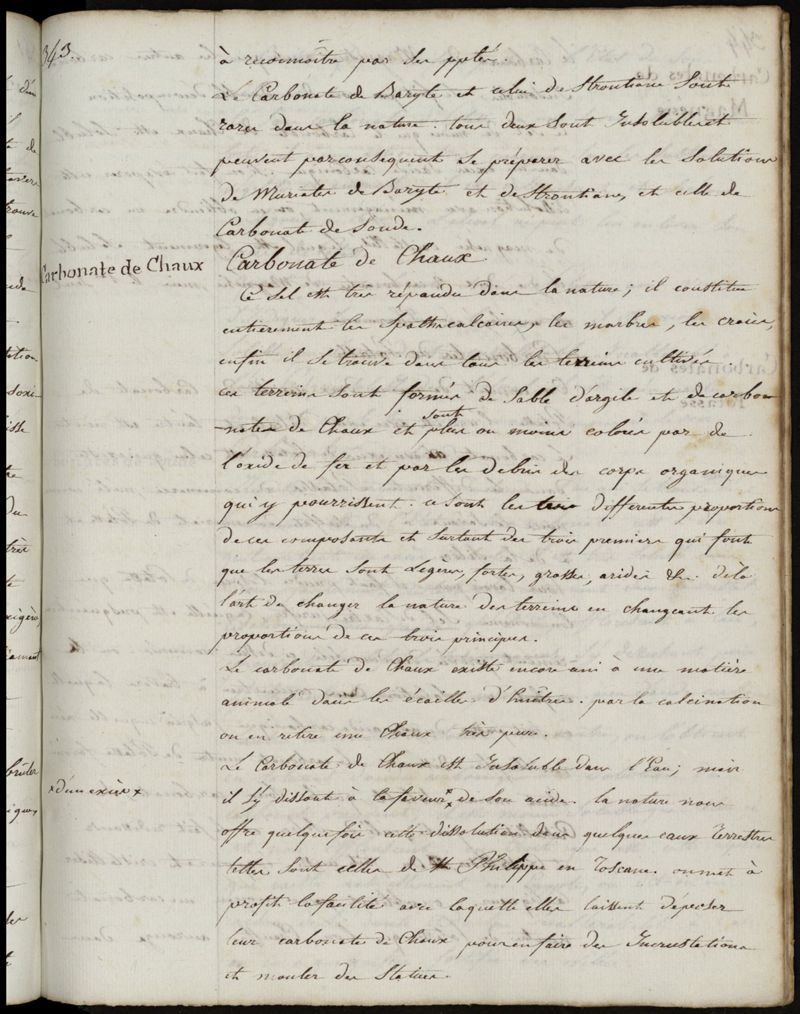 343.
à reconnoître par ses pptés.
Le Carbonate de Baryte et celui de Strontiane Sont
rares dans la nature. tous deux Sont Insolubles et
peuvent parconsequent se préparer avec les Solutions
de Muriates de Baryte et de Strontiane, et celle de
Carbonate de Soude.
Carbonate de Chaux
Carbonate de Chaux
Ce Sel est très répandu dans la nature; il constitue
entierement les Spaths calcaires, les marbres, les craies,
enfin il se trouve dans tous les terreins cultivés.
ces terreins Sont formés de Sable d'argile et de carbo-
-nates de Chaux et sont plus ou moins colorés par de
l'oxide de fer et par les debris des corps organiques
qui y pourrissent. ce sont les differentes proportions
de ces composants et Surtout des trois premiers qui font
que les terres Sont Legères, fortes, grasses, arides &c. de là
l'art de changer la nature des terreins en changeant les
proportions de ces trois principes.
Le carbonate de Chaux existe encore uni à une matière
animale dans les écailles d'huitres. par la calcination
on en retire une Chaux très pure.
Le Carbonate de Chaux est Insoluble dans l'Eau; mais
il s'y dissout à la faveur x de son acide. la nature nous
x d'un excès x
offre quelque fois cette dissolution dans quelques eaux Terrestres
telles sont celles de St Philippe en Toscane. on met à
profit la facilité avec laquelle elles laissent déposer
leur carbonate de Chaux pour en faire des Incrustations
et mouler des Statues.